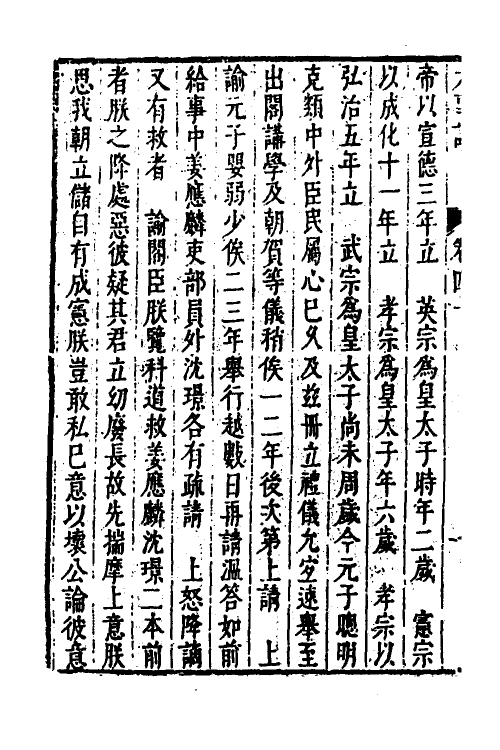 帝以宣德三年立　英宗爲皇太子時年二歲　憲宗
以成化十一年立　孝宗爲皇太子年六歲　孝宗以
弘治五年立　武宗爲皇太子尚未周歲今元子聰明
克類中外臣民屬心已久及玆冊立禮儀允宜速舉至
出閣講學及朝賀等儀稍俟一二年後次第上請　上
諭元子嬰弱少俟二三年舉行越數日再請溫答如前
給事中姜應麟吏部員外沈璟各有疏請　上怒降謫
又有救者　諭閣臣朕覽科道救姜應麟沈璟二本前
者朕之降處惡彼疑其君立幼廢長故先揣摩上意朕
思我朝立儲自有成憲朕豈敢私已意以壞公論彼意